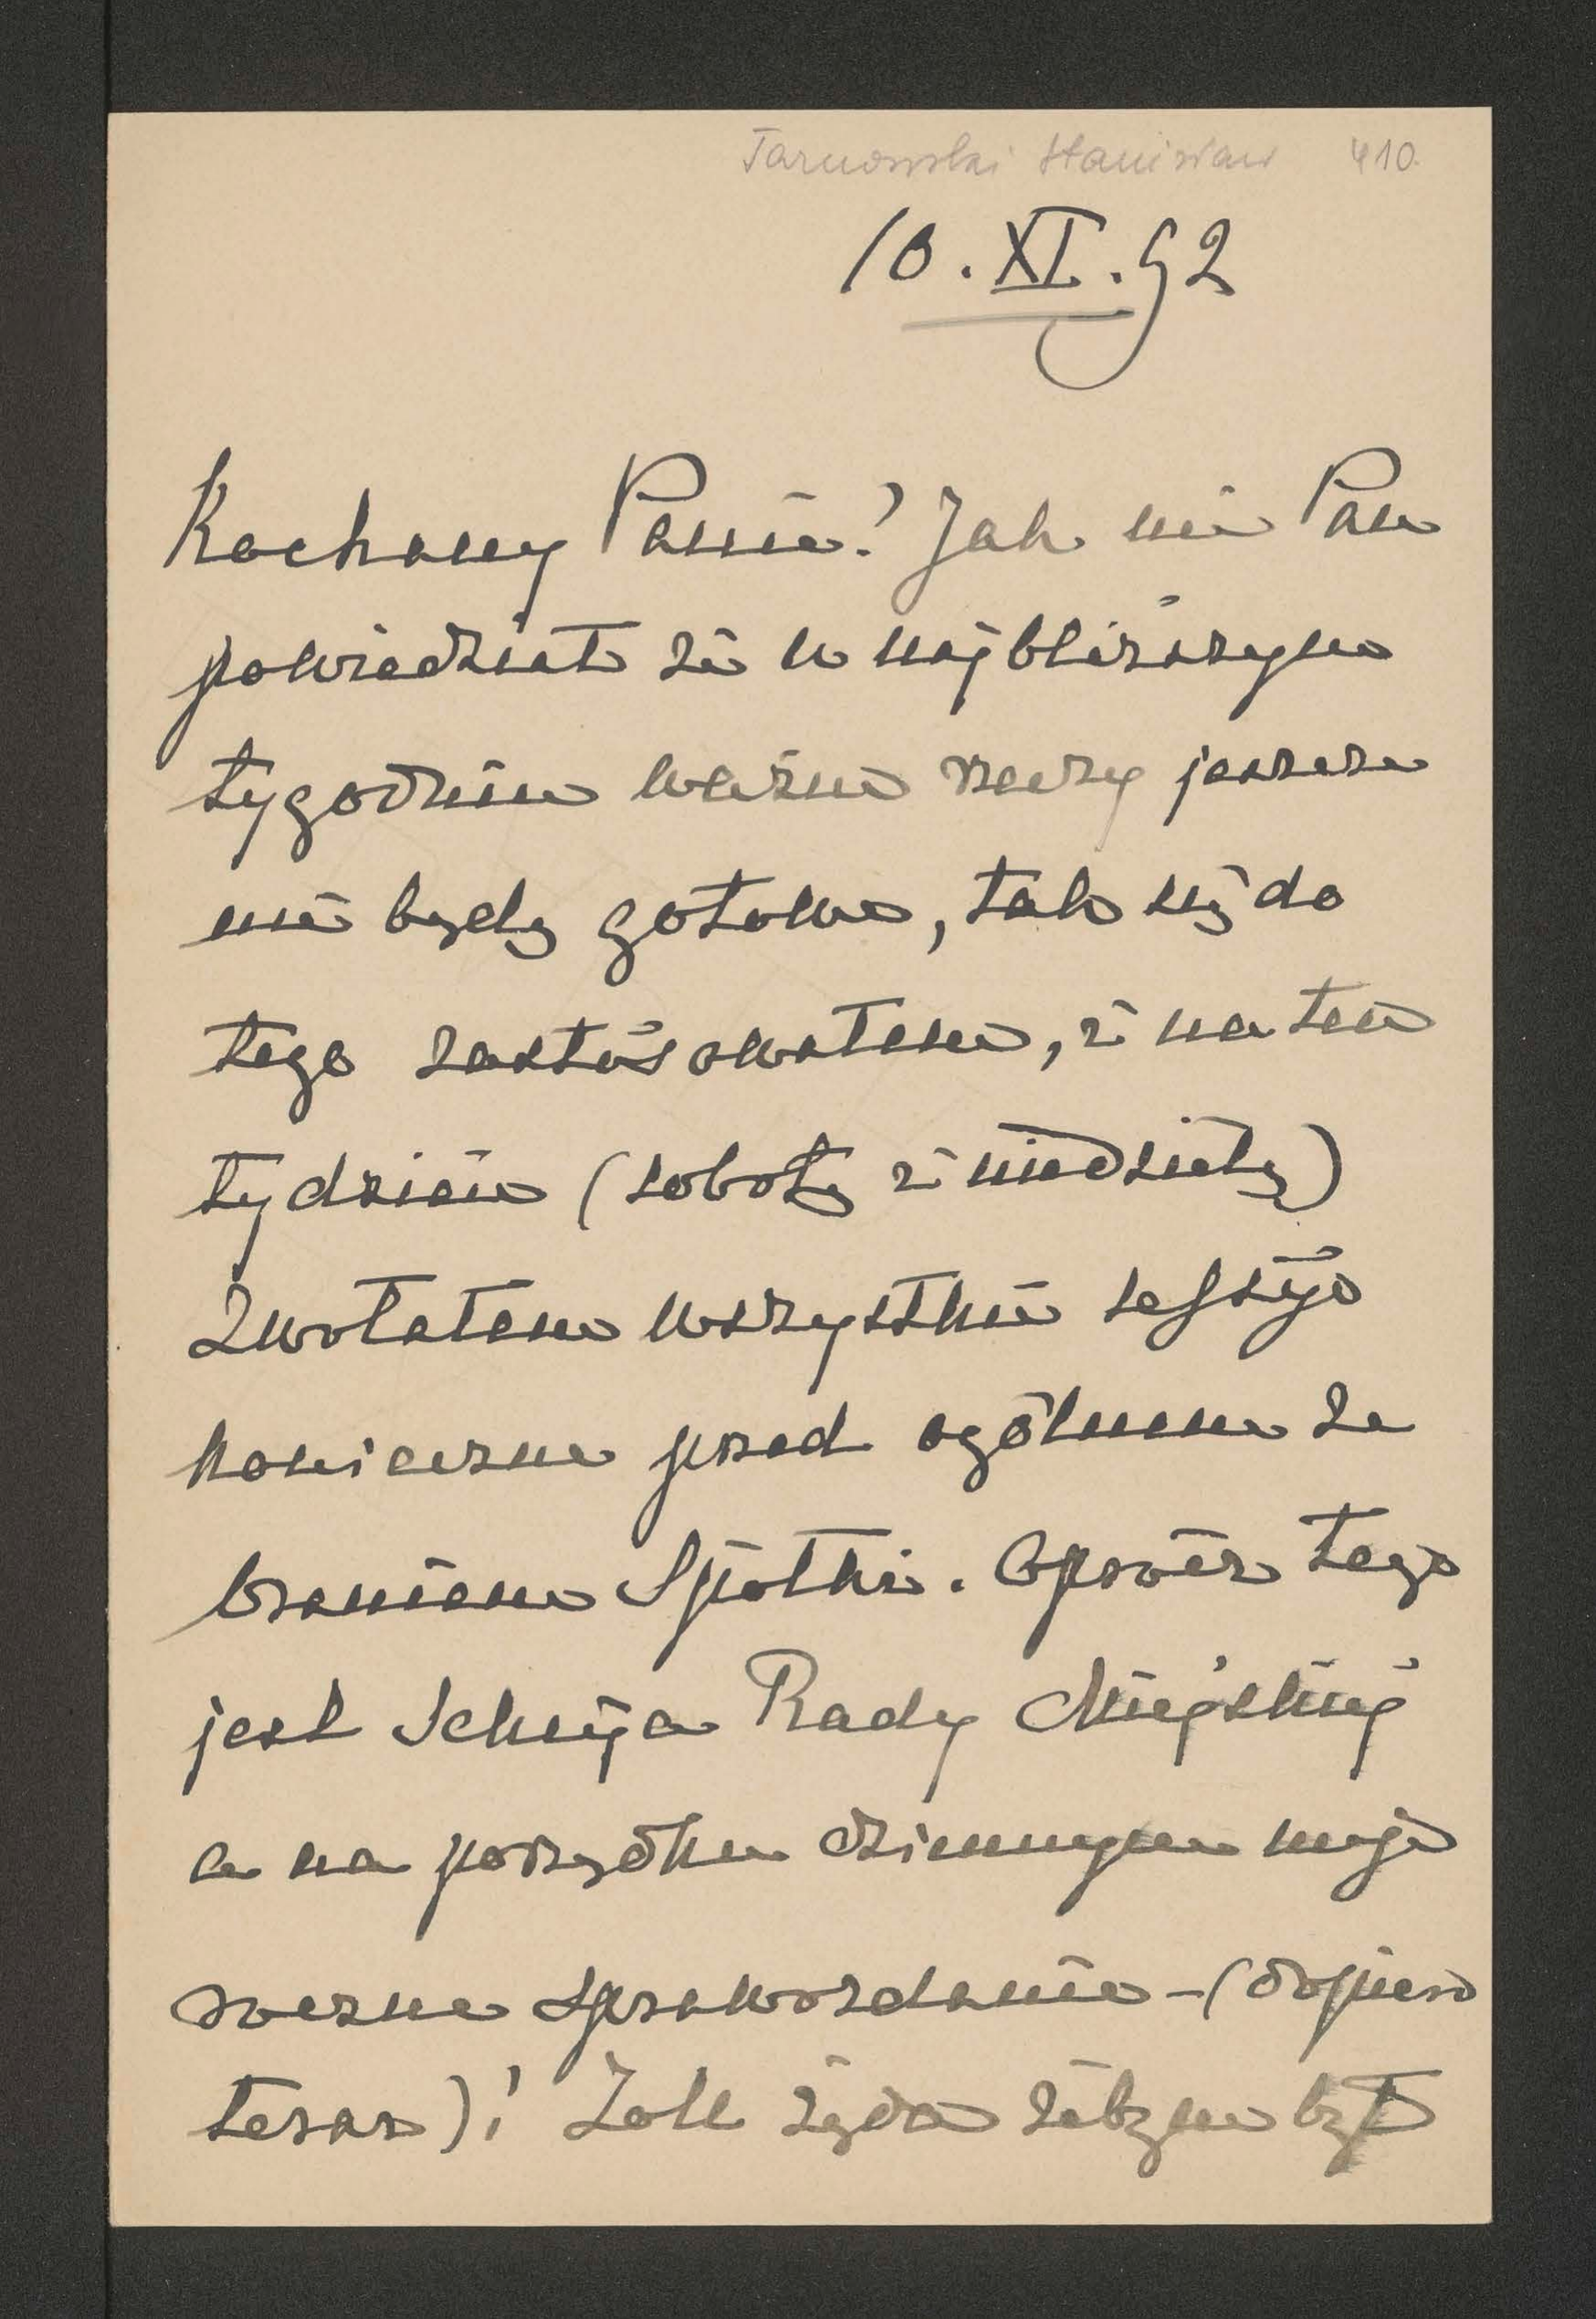 Tarnowski Stanisław 410.
10.XI.92
Kochany Panie! Jak mi Pan
powiedział że w najbliższym
tygodniu ważne rzeczy jeszcze
nie będą gotowe, tak się do
tego zastósowałem, i na ten
tydzień (sobotę i niedzielę)
zwołałem wszystkie sessyje
konieczne przed ogólnem ze
braniem Spółki. Oprócz tego
jest Sekcyja Rady Miejskiej
a na porządku dziennym moje
roczne sprawozdanie – (dopiero
teraz)! Zoll żąda żebym był